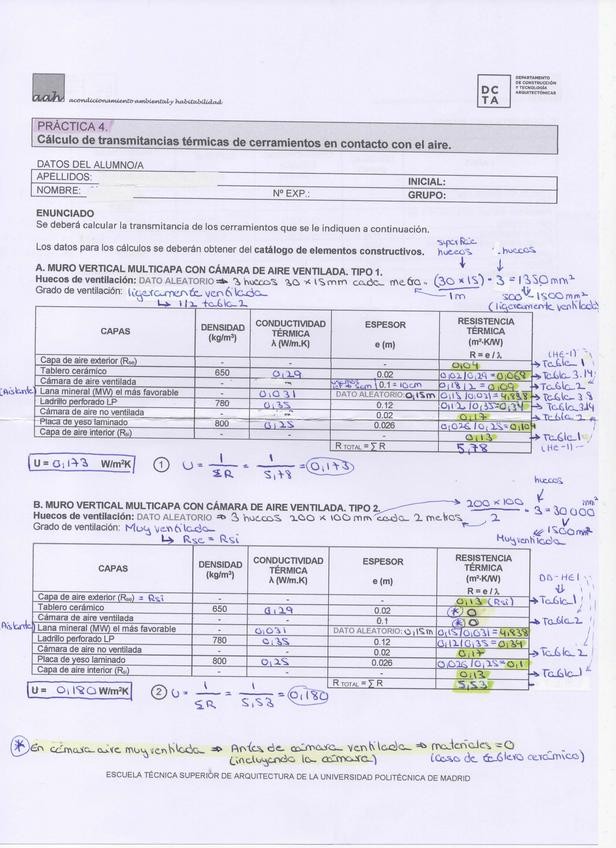 aah acondicionamiento ambiental y habitabilidad
DC TA
DEPARTAMENTO
DE CONSTRUCCIÓN
Y TECNOLOGÍA
ARQUITECTÓNICAS
PRÁCTICA 4.
Cálculo de transmitancias térmicas de cerramientos en contacto con el aire.
DATOS DEL ALUMNO/A
APELLIDOS: INICIAL:
NOMBRE: Nº EXP.: GRUPO:
ENUNCIADO
Se deberá calcular la transmitancia de los cerramientos que se le indiquen a continuación.
Los datos para los cálculos se deberán obtener del catálogo de elementos constructivos.
superficie huecos
nº huecos
A. MURO VERTICAL MULTICAPA CON CÁMARA DE AIRE VENTILADA. TIPO 1.
Huecos de ventilación: DATO ALEATORIO ⇒ 3 huecos 30 x 15 mm cada metro. (30 x 15) / 1m · 3 = 1350 mm²
Grado de ventilación: ligeramente ventilada
500 - 1500 mm²
(ligeramente ventilada)
↳ 1/2 tabla 2
CAPAS DENSIDAD (kg/m³) CONDUCTIVIDAD TÉRMICA λ (W/m.K) ESPESOR e (m) RESISTENCIA TÉRMICA (m²·K/W) R = e / λ
(HE-1)
Capa de aire exterior (Rse) - - - 0,04 → Tabla 1
Tablero cerámico 650 0,29 0.02 0,02/0,29 = 0,068 → Tabla 3.14
Cámara de aire ventilada - - 0.1 = 10cm 0,18/2 = 0,09 → Tabla 2
(Aislante) Lana mineral (MW) el más favorable - 0,031 DATO ALEATORIO: 0,15m 0,15/0,031 = 4,838 → Tabla 3.8
Ladrillo perforado LP 780 0,35 0.12 0,12/0,35 = 0,34 → Tabla 3.14
Cámara de aire no ventilada - - 0.02 0,17 → Tabla 2
Placa de yeso laminado 800 0,25 0.026 0,026/0,25 = 0,104
Capa de aire interior (Rsi) - - - 0,13 → Tabla 1
(HE-1)
R TOTAL = ∑ R 5,78
U = 0,173 W/m²K ① U = 1/ΣR = 1/5,78 = 0,173
nº huecos
B. MURO VERTICAL MULTICAPA CON CÁMARA DE AIRE VENTILADA. TIPO 2.
Huecos de ventilación: DATO ALEATORIO ⇒ 3 huecos 200 x 100 mm cada 2 metros → 200 x 100 / 2 · 3 = 30000 mm²
Grado de ventilación: Muy ventilada
1500 mm²
Muy ventilada
↳ Rse = Rsi
CAPAS DENSIDAD (kg/m³) CONDUCTIVIDAD TÉRMICA λ (W/m.K) ESPESOR e (m) RESISTENCIA TÉRMICA (m²·K/W) R = e / λ
DB-HE1
Capa de aire exterior (Rse) = Rsi - - - 0,13 (Rsi) → Tabla 1
Tablero cerámico 650 0,29 0.02 (*) 0
Cámara de aire ventilada - - 0.1 (*) 0 → Tabla 2
(Aislante) Lana mineral (MW) el más favorable - 0,031 DATO ALEATORIO: 0,15m 0,15/0,031 = 4,838
Ladrillo perforado LP 780 0,35 0.12 0,12/0,35 = 0,34
Cámara de aire no ventilada - - 0.02 0,17 → Tabla 2
Placa de yeso laminado 800 0,25 0.026 0,026/0,25 = 0,1
Capa de aire interior (Rsi) - - - 0,13 → Tabla 1
R TOTAL = ∑ R 5,53
U = 0,180 W/m²K ② U = 1/ΣR = 1/5,53 = 0,180
(*) En cámara aire muy ventilada ⇒ Antes de cámara ventilada ⇒ materiales = 0
(incluyendo la cámara) (caso de tablero cerámico)
ESCUELA TÉCNICA SUPERIOR DE ARQUITECTURA DE LA UNIVERSIDAD POLITÉCNICA DE MADRID